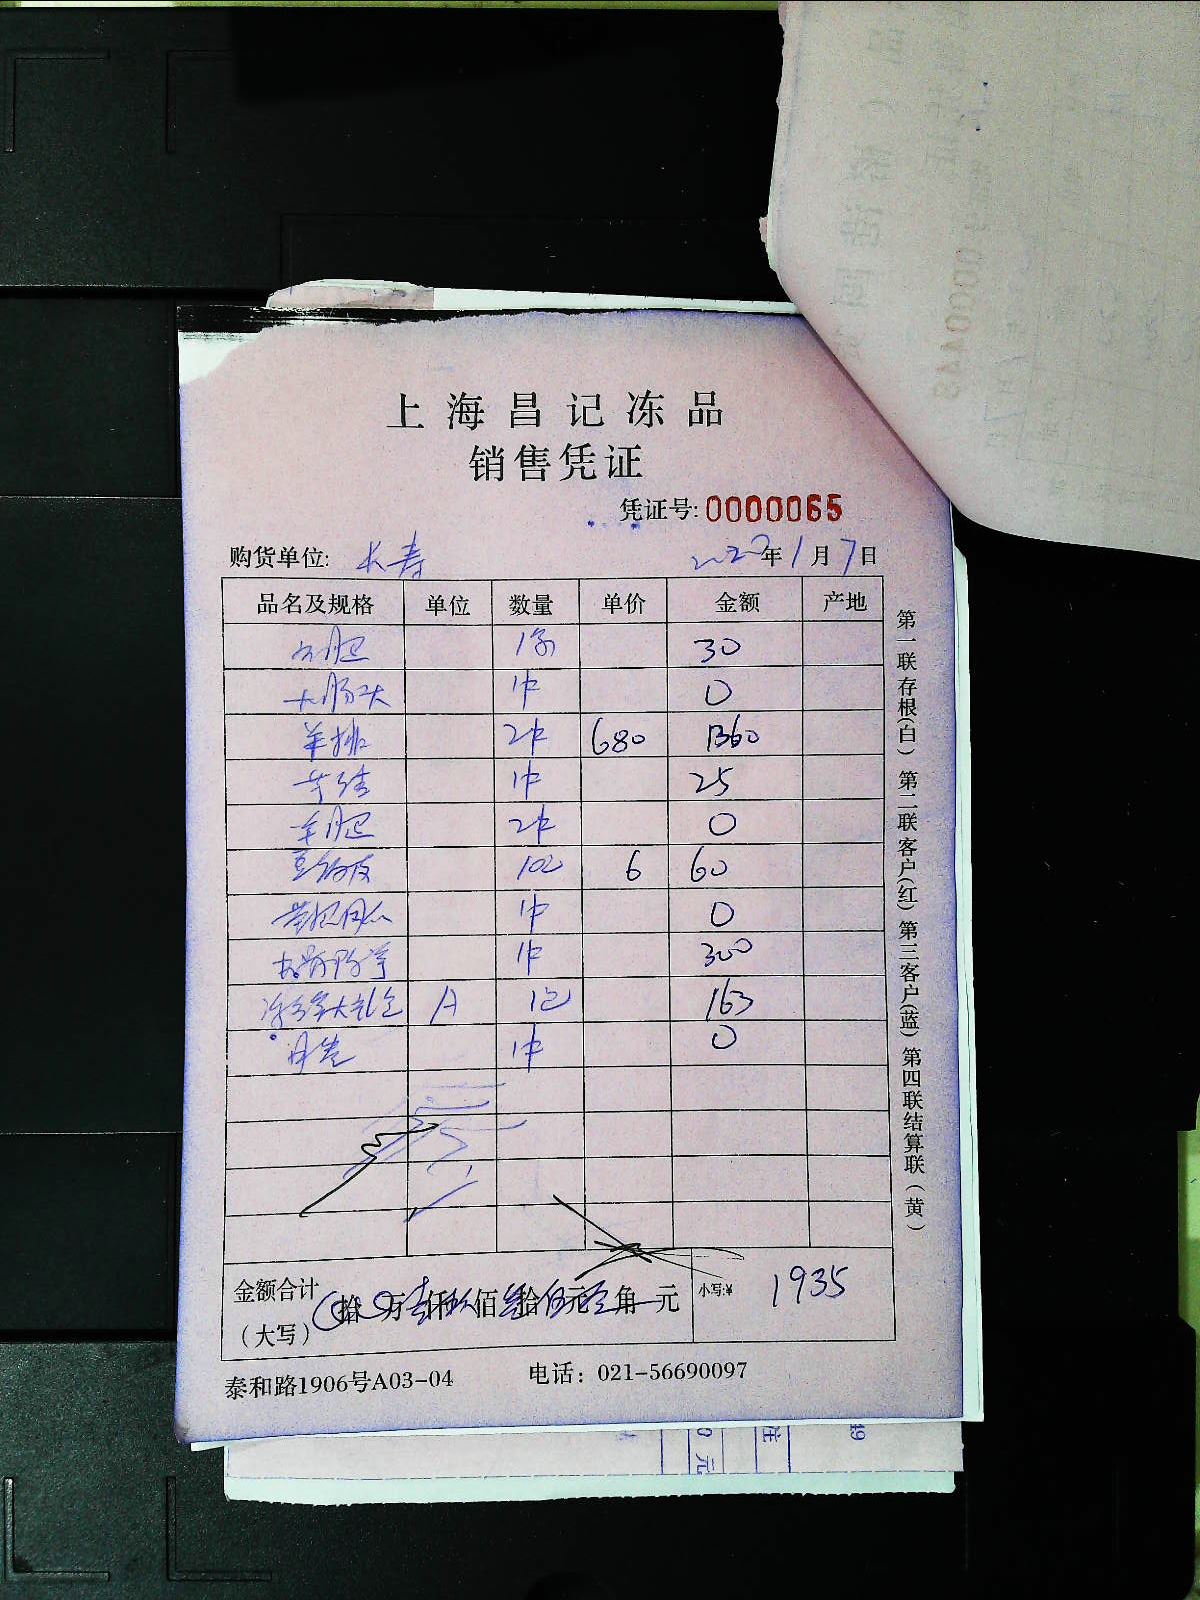 上海昌记冻品
销售凭证
凭证号:0000065
购货单位: 长寿 2020年1月7日
品名及规格 单位 数量 单价 金额 产地
30
大肠头 1件 0
羊排 2件 680 1360
1件 25
2件 0
10包 6 60
1件 0
1件 300
大礼包 A 1包 163
1件 0
金额合计 拾万壹仟玖佰叁拾伍元 角 元 小写:¥ 1935
(大写)
泰和路1906号A03-04 电话: 021-56690097
第一联存根(白) 第二联客户(红) 第三客户(蓝) 第四联结算联(黄)